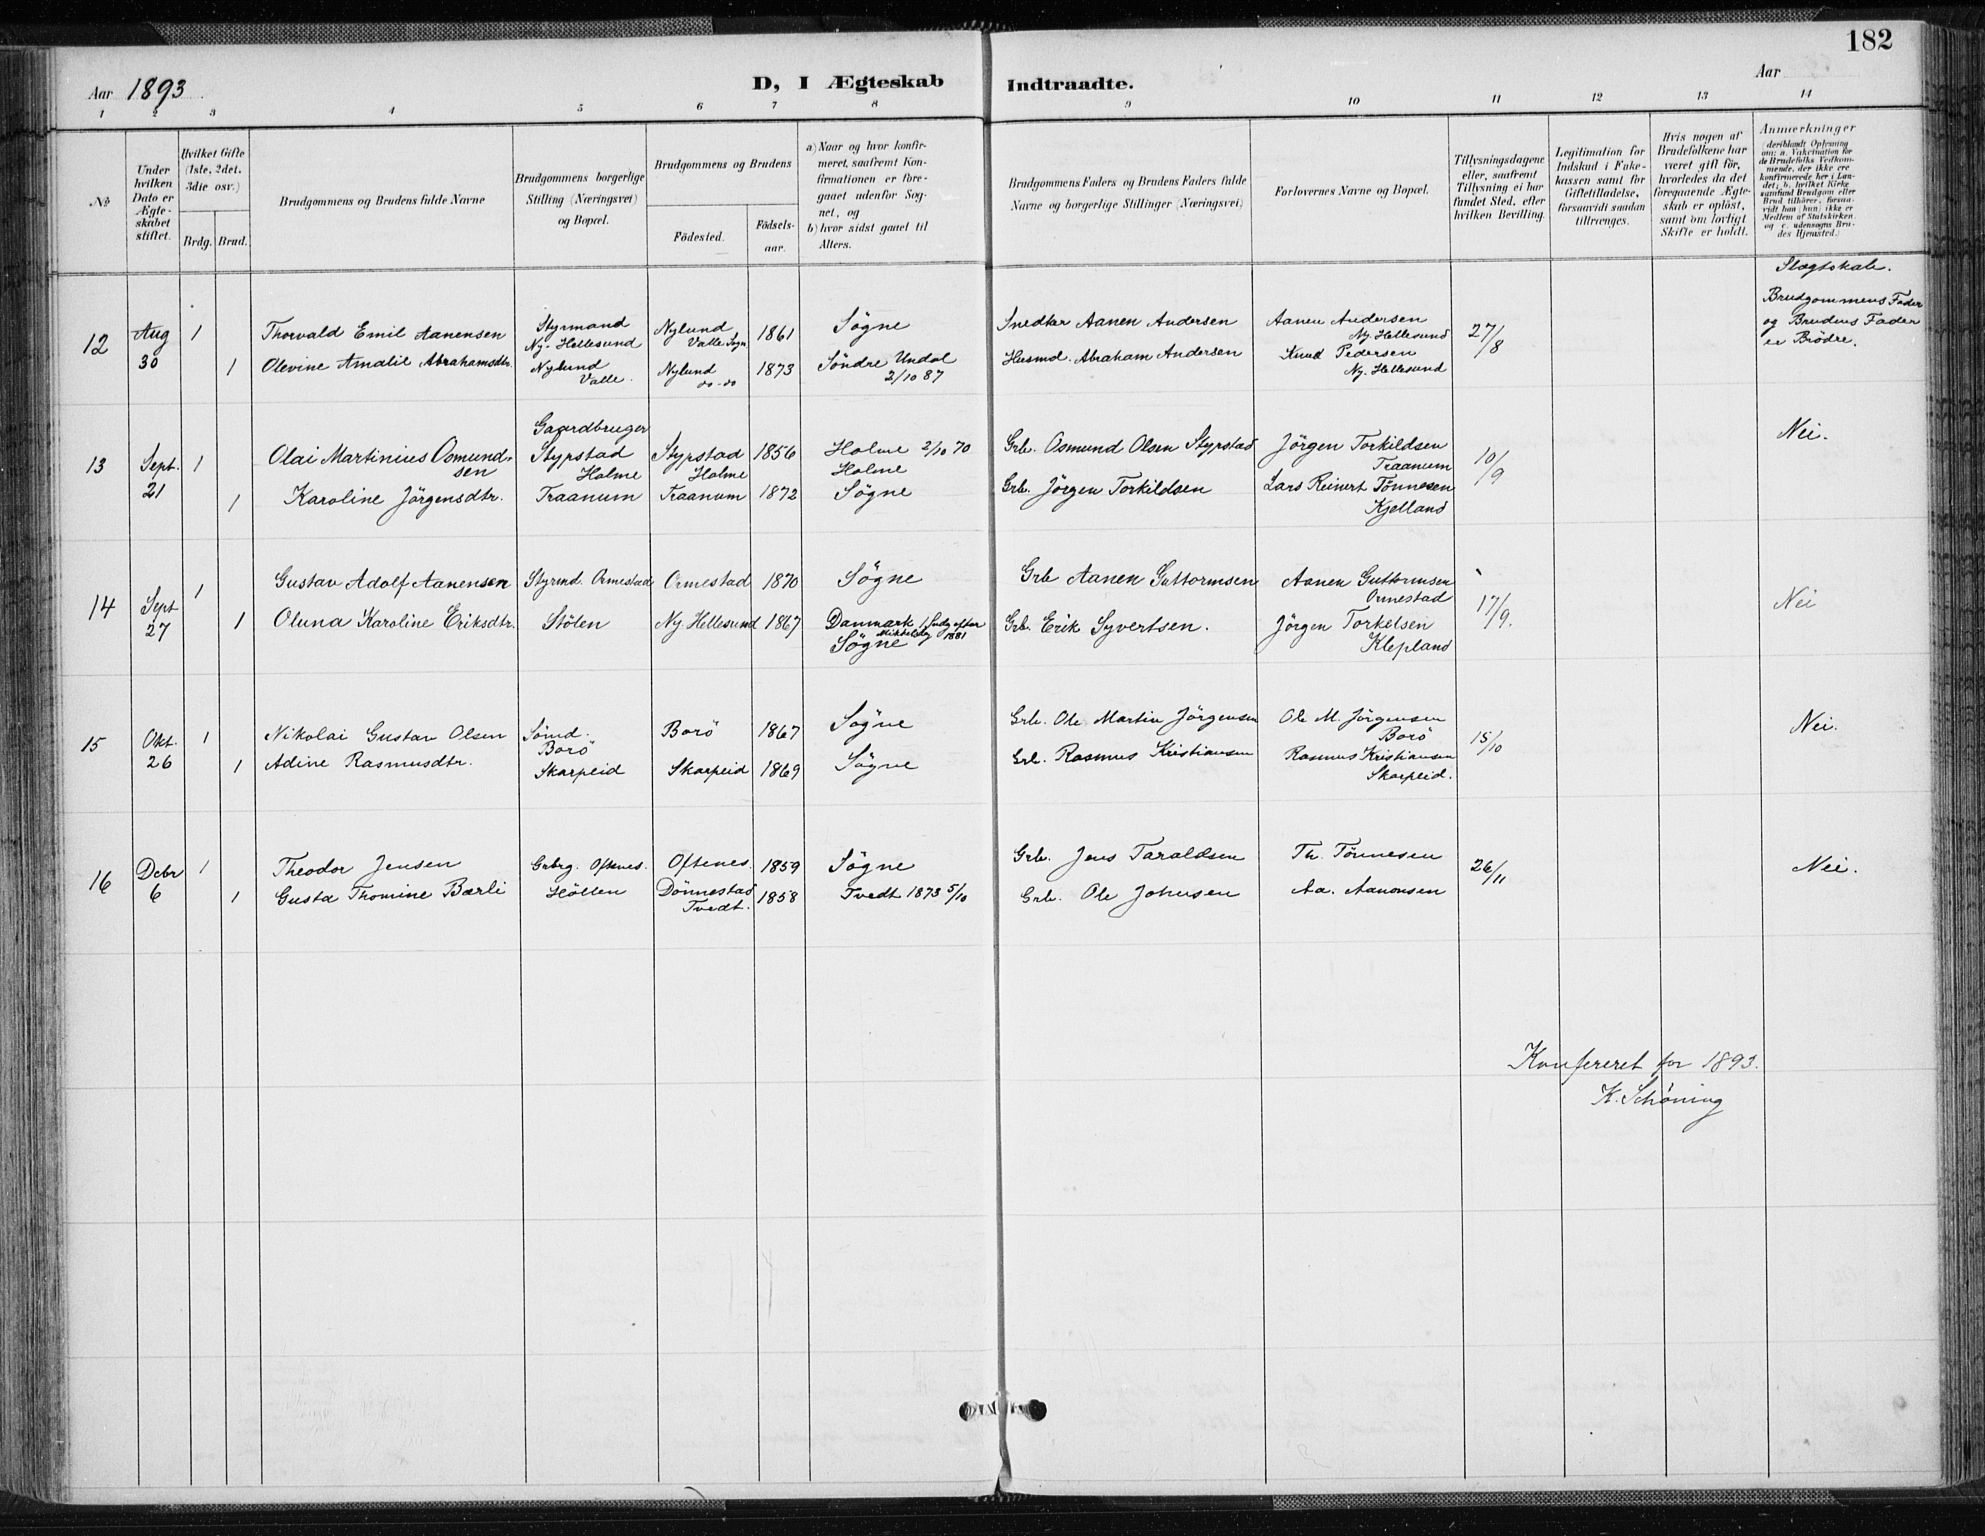 182
Aar 1893
D, I Ægteskab Indtraadte.
Aar
1 2 3 4 5 6 7 8 9 10 11 12 13 14
№
Under hvilken Dato er Ægteskabet stiftet.
Hvilket Gifte (1ste, 2det, 3die osv.)
Brdg. Brud.
Brudgommens og Brudens fulde Navne
Brudgommens borgerlige Stilling (Næringsvei) og Bopæl.
Brudgommens og Brudens
Fødested. Fødselsaar.
a) Naar og hvor konfirmeret, saafremt Konfirmationen er foregaaet udenfor Sognet, og
b) hvor sidst gaaet til Alters.
Brudgommens Faders og Brudens Faders fulde Navne og borgerlige Stillinger (Næringsvei)
Forlovernes Navne og Bopæl.
Tillysningsdagene eller, saafremt Tillysning ei har fundet Sted, efter hvilken Bevilling.
Legitimation for Indskud i Enkekassen samt for Giftetilladelse, forsaavidt saadan tiltrænges.
Hvis nogen af Brudefolkene har været gift før, hvorledes da det foregaaende Ægteskab er opløst, samt om lovligt Skifte er holdt.
Anmærkninger
(deriblandt Oplysning om: a. Vakcination for de Brudefolks Vedkommende, der ikke ere konfirmerede her i Landet; b. hvilket Kirkesamfund Brudgom eller Brud tilhører, forsaavidt han (hun) ikke er Medlem af Statskirken, og c. udensogns Brudes Hjemsted.)
Slægtskab.
12 Aug 30 1 Thorvald Emil Aanensen Styrmand Ny-Hellesund Nylund Valle Sogn 1861 Søgne Snedker Aanen Andersen Aanen Andersen Ny Hellesund 27/8 Brudgommens Fader og Brudens Fader er Brødre.
1 Olevine Amalie Abrahamsdtr. Nylund Valle. Nylund do-do 1873 Söndre Undal 2/10 87 Husmd. Abraham Andersen Knud Pedersen Ny. Hellesund
13 Sept. 21 1 Olai Martinius Osmundsen Gaardbruger Stypstad Holme Stypstad Holme 1856 Holme 2/10 70 Holme Grb. Osmund Olsen Stypstad Jörgen Torkildsen Traanum 10/9 Nei.
1 Karoline Jörgensdtr. Traanum Traanum 1872 Søgne Grb. Jörgen Torkildsen Lars Reinert Tönnesen Kjelland
14 Sept 27 1 Gustav Adolf Aanensen Styrmd. Ormestad Ormestad 1870 Søgne Grb Aanen Guttormsen Aanen Guttormsen Ormestad 17/9. Nei
1 Oluna Karoline Eriksdtr. Stölen Ny Hellesund 1867 Danmark 1 Sndg efter Mikkelsdg 1881 Søgne Grb. Erik Syvertsen. Jörgen Torkelsen Klepland
15 Okt. 26 1 Nikolai Gustav Olsen Sömd. Borö Borö 1867 Søgne Grb. Ole Martin Jörgensen Ole M. Jörgensen Borö 15/10 Nei.
1 Adine Rasmusdtr. Skarpeid Skarpeid 1869 Søgne Grb. Rasmus Kristiansen Rasmus Kristiansen Skarpeid.
16 Debr 6 1 Theodor Jensen Grbrg. Oftenes. Oftenes. 1859 Søgne Grb. Jens Taraldsen Th. Tönnesen 26/11 Nei.
1 Gusta Thomine Bærli Höllen Dönnestad Tvedt. 1858 Tvedt 1873 5/10 Grb. Ole Johnsen Aa. Aanonsen
Konfereret for 1893.
K. Schöning